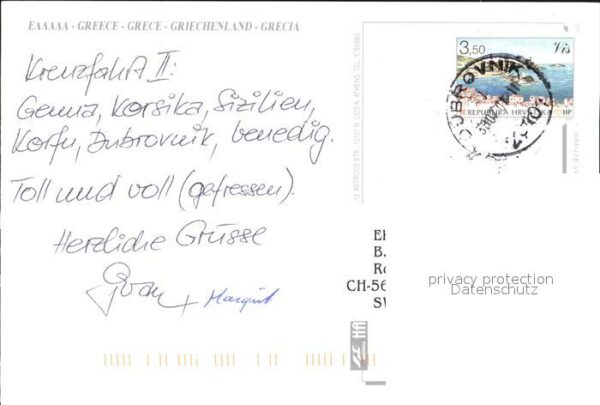 ΕΛΛΑΔΑ - GREECE - GRECE - GRIECHENLAND - GRECIA
Kreuzfahrt II:
Genua, Korsika, Sizilien,
Korfu, Dubrovnik, Venedig.
Toll und voll (gefressen).
Herzliche Grüsse
+ Margrit
3,50
Vis
REPUBLIKA HRVATSKA HP
DUBROVNIK
El
B.
Ro
CH-56
SV
privacy protection
Datenschutz